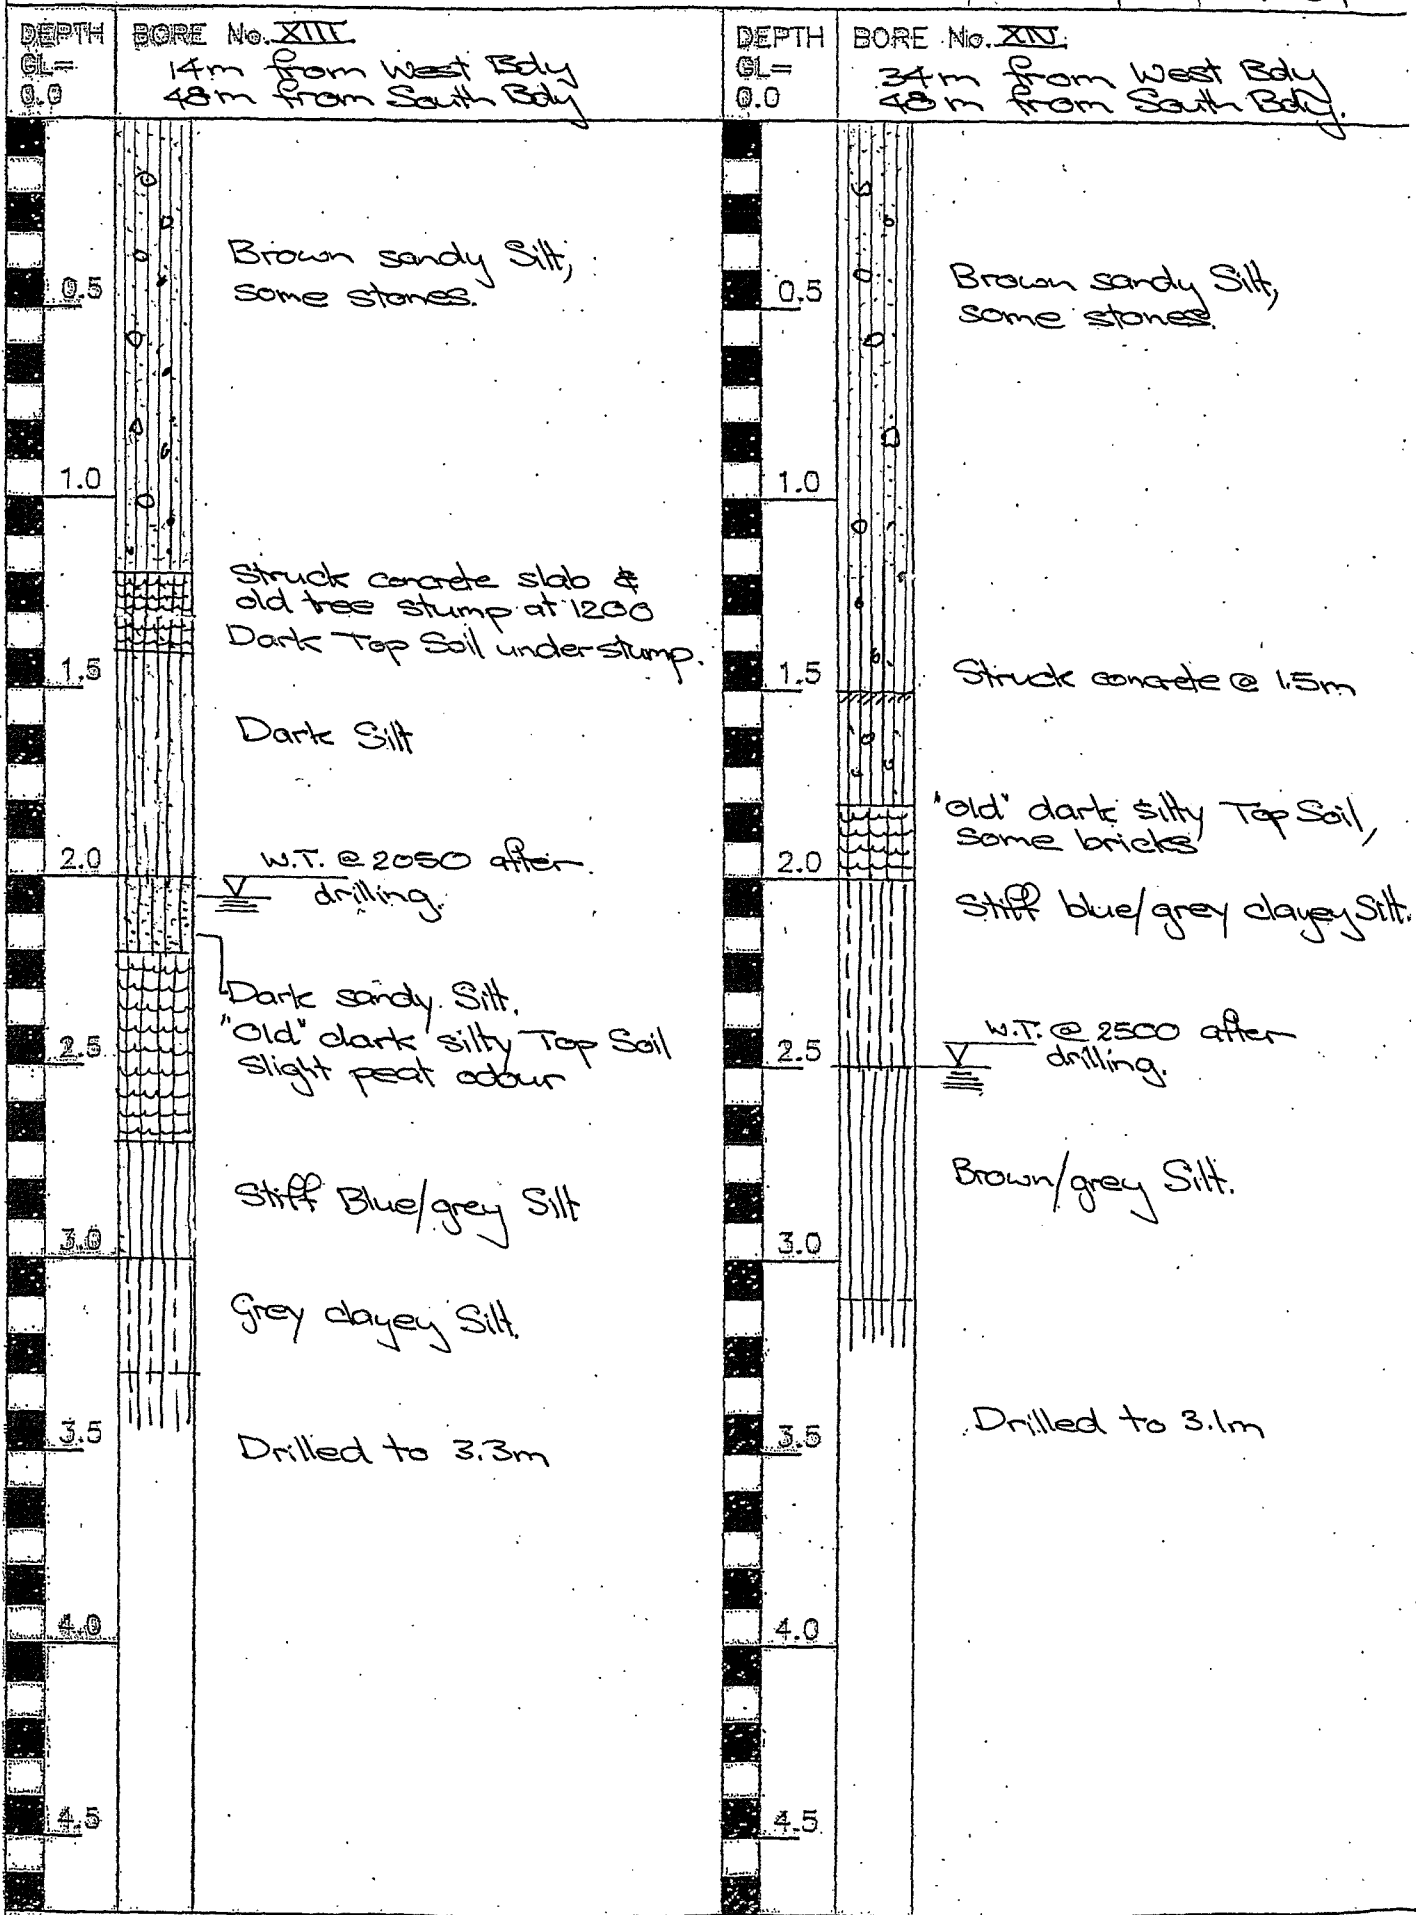 DEPTH
GL=
0.0
BORE No. XIII
14m from West Bdy
48m from South Bdy
0.5
Brown sandy Silt,
some stones.
1.0
Struck concrete slab &
old tree stump at 1200
Dark Top Soil under stump.
1.5
Dark Silt
2.0
W.T. @ 2050 after
drilling.
Dark sandy Silt.
"Old" dark silty Top Soil
Slight peat odour
2.5
Stiff Blue/grey Silt
3.0
Grey clayey Silt.
3.5
Drilled to 3.3m
4.0
4.5
DEPTH
GL=
0.0
BORE No. XIV
34m from West Bdy
48m from South Bdy.
0.5
Brown sandy Silt,
some stones.
1.0
1.5
Struck concrete @ 1.5m
"Old" dark silty Top Soil,
some bricks
2.0
Stiff blue/grey clayey Silt.
W.T. @ 2500 after
drilling.
2.5
Brown/grey Silt.
3.0
Drilled to 3.1m
3.5
4.0
4.5